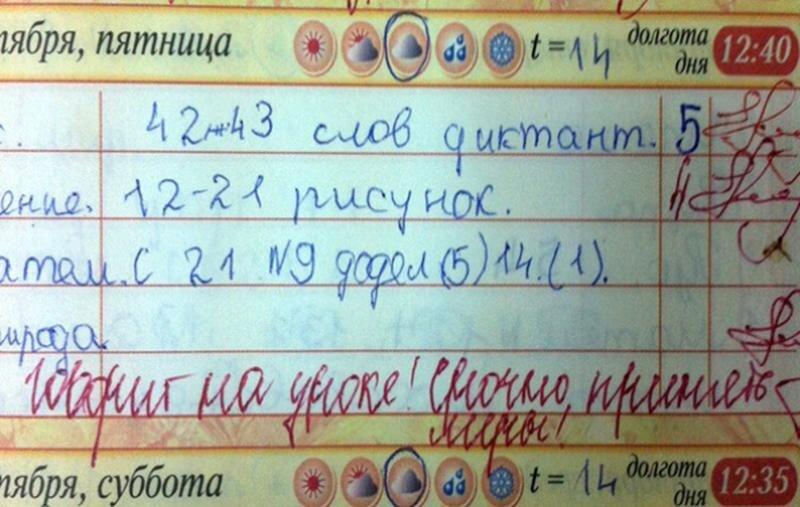 тября, пятница t = 14 долгота дня 12:40
42-43 слов диктант. 5
ение. 12-21 рисунок. 4
атем. С 21 №9 додел (5) 14. (1).
ирода.
Говорит на уроке! Срочно принять
меры!
тября, суббота t = 14 долгота дня 12:35